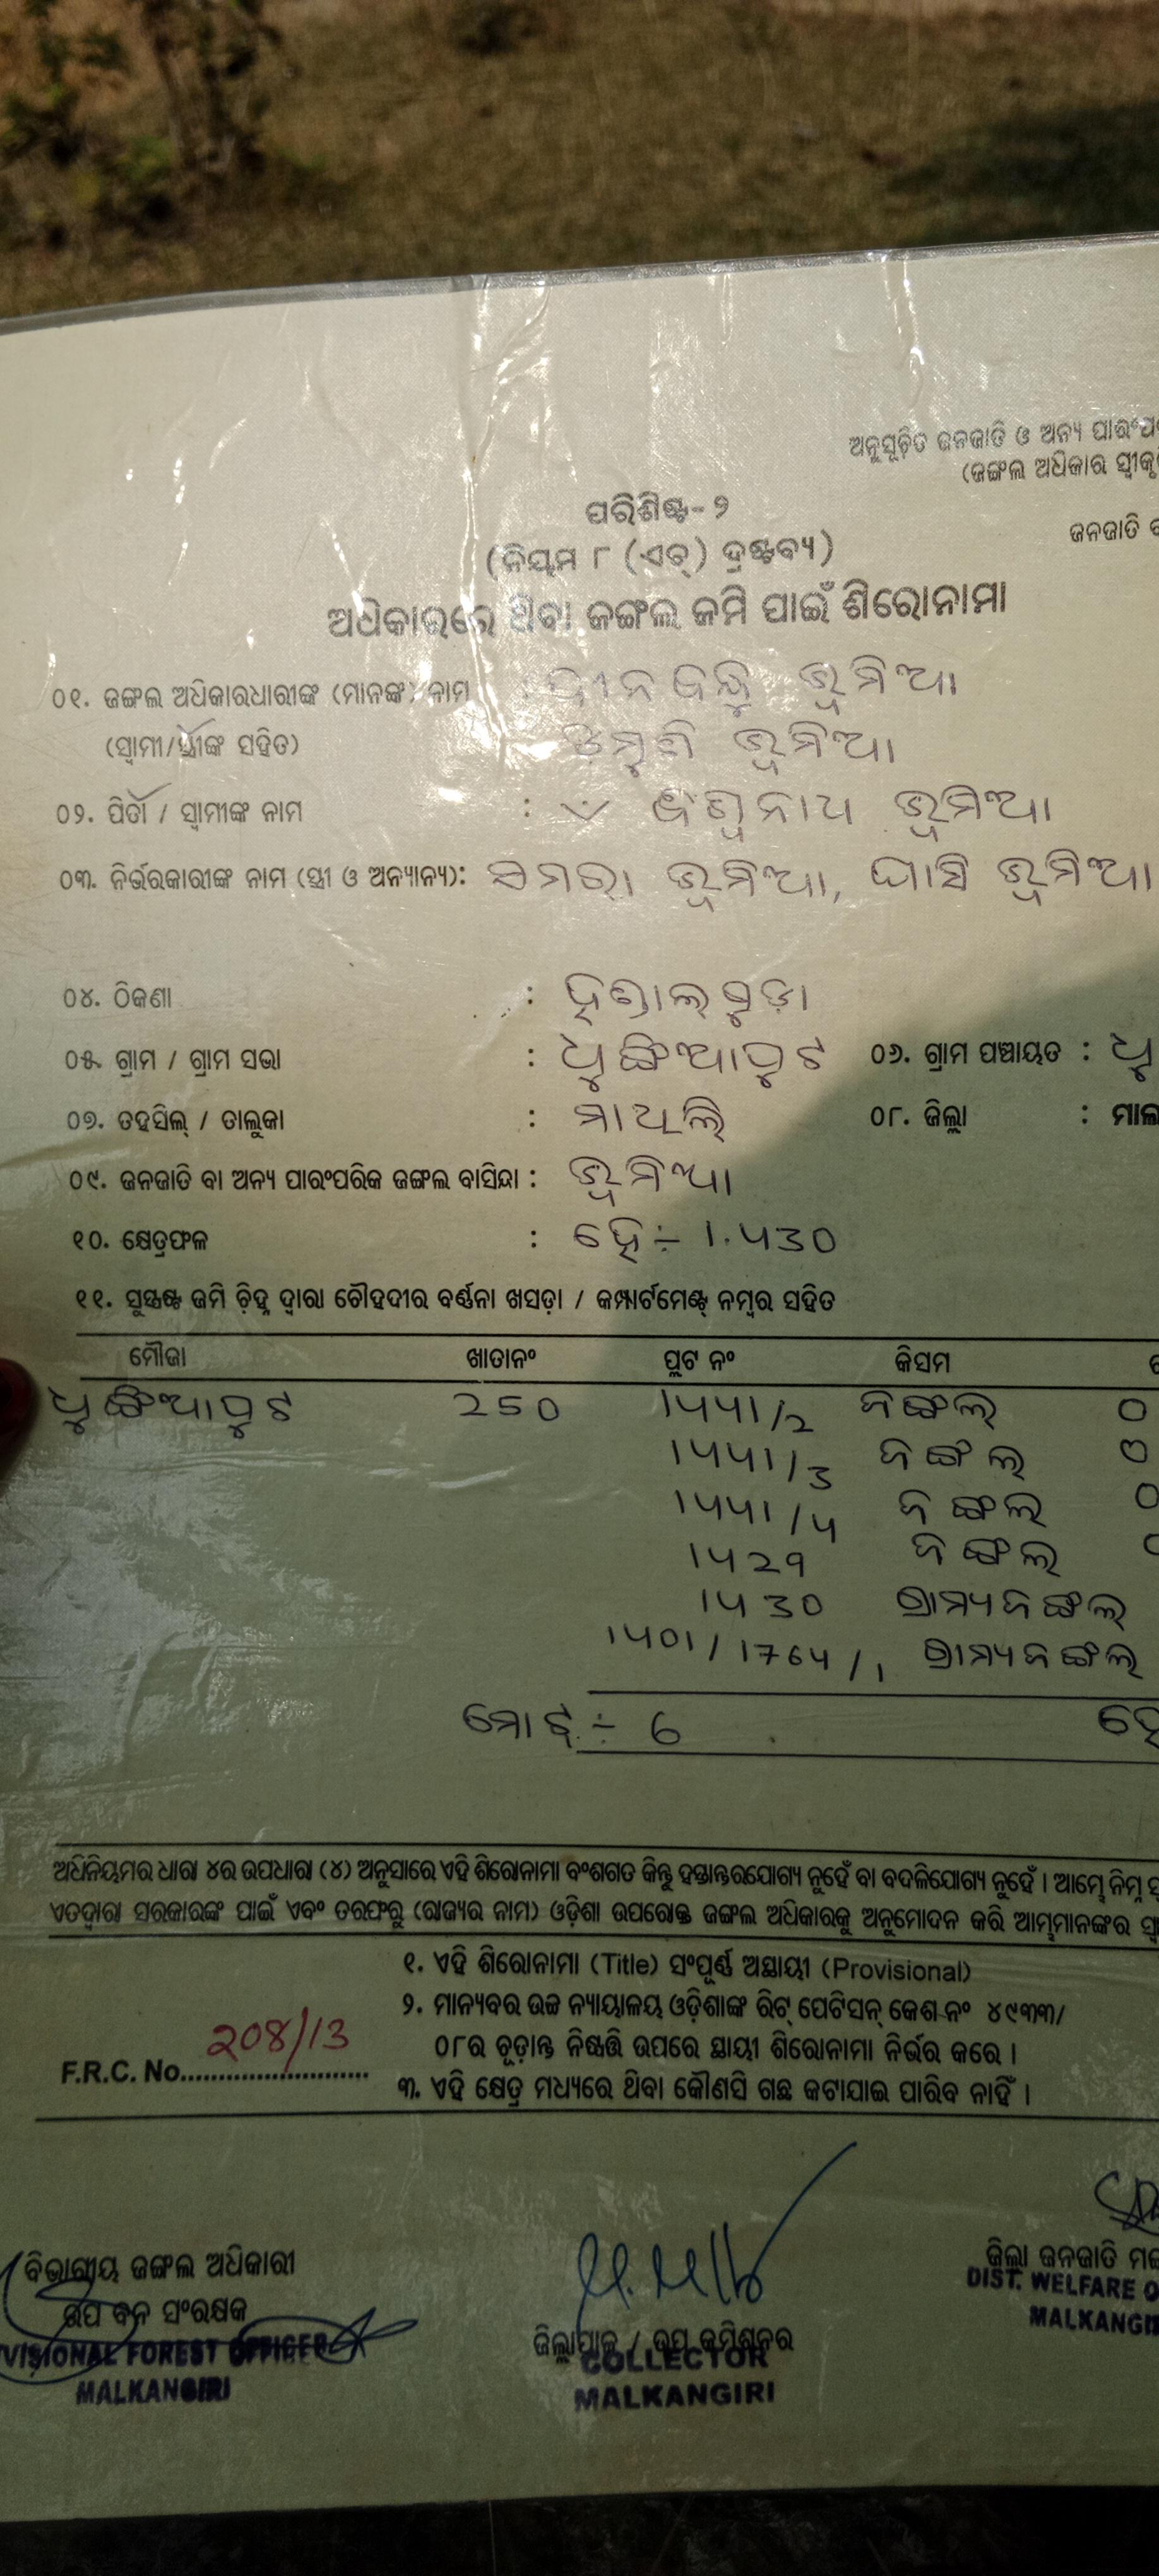 ଅନୁସୂଚିତ ଜନଜାତି ଓ ଅନ୍ୟ
(ଜଙ୍ଗଲ ଅଧିକାର
ପରିଶିଷ୍ଟ-୨
ଜନଜାତି
(ନିୟମ ୮ (ଏଚ୍) ଦ୍ରଷ୍ଟବ୍ୟ)
ଅଧିକାରରେ ଥିବା ଜଙ୍ଗଲ ଜମି ପାଇଁ ଶିରୋନାମା
୦୧. ଜଙ୍ଗଲ ଅଧିକାରଧାରୀଙ୍କ (ମାନଙ୍କ) ନାମ : ଦୀନବନ୍ଧୁ ଭୂମିଆ
(ସ୍ୱାମୀ/ସ୍ତ୍ରୀଙ୍କ ସହିତ) ଭୂମିଆ
୦୨. ପିତା / ସ୍ୱାମୀଙ୍କ ନାମ : ଭୂମିଆ
୦୩. ନିର୍ଭରକାରୀଙ୍କ ନାମ (ସ୍ତ୍ରୀ ଓ ଅନ୍ୟାନ୍ୟ): ସମରା ଭୂମିଆ, ଘାସି ଭୂମିଆ
୦୪. ଠିକଣା : ହଣ୍ଡାଲଗୁଡ଼ା
୦୫. ଗ୍ରାମ / ଗ୍ରାମ ସଭା : ଧୁଙ୍ଗିଆପୁଟ ୦୬. ଗ୍ରାମ ପଞ୍ଚାୟତ : ଧୁ
୦୭. ତହସିଲ୍ / ତାଲୁକା : ମାଥିଲି ୦୮. ଜିଲ୍ଲା :
୦୯. ଜନଜାତି ବା ଅନ୍ୟ ପାରଂପରିକ ଜଙ୍ଗଲ ବାସିନ୍ଦା : ଭୂମିଆ
୧୦. କ୍ଷେତ୍ରଫଳ : ହେ÷ 1.430
୧୧. ସୁସ୍ପଷ୍ଟ ଜମି ଚିହ୍ନ ଦ୍ୱାରା ଚୌହଦୀର ବର୍ଣ୍ଣନା ଖସଡ଼ା / କମ୍ପାର୍ଟମେଣ୍ଟ୍ ନମ୍ବର ସହିତ
ମୌଜା ଖାତାନଂ ପ୍ଲଟ ନଂ କିସମ
ଧୁଙ୍ଗିଆପୁଟ 250 1441/2 ଜଙ୍ଗଲ 0
1441/3 ଜଙ୍ଗଲ 0
1441/4 ଜଙ୍ଗଲ 0
1429 ଜଙ୍ଗଲ
1430 ଗ୍ରାମ୍ୟଜଙ୍ଗଲ
1401/1764/1 ଗ୍ରାମ୍ୟଜଙ୍ଗଲ
ମୋଟ÷ 6 ହେ
ଅଧିନିୟମର ଧାରା ୪ର ଉପଧାରା (୪) ଅନୁସାରେ ଏହି ଶିରୋନାମା ବଂଶଗତ କିନ୍ତୁ ହସ୍ତାନ୍ତରଯୋଗ୍ୟ ନୁହେଁ ବା ବଦଳିଯୋଗ୍ୟ ନୁହେଁ । ଆମ୍ଭେ ନିମ୍ନ
ଏତଦ୍ଵାରା ସରକାରଙ୍କ ପାଇଁ ଏବଂ ତରଫରୁ (ରାଜ୍ୟର ନାମ) ଓଡ଼ିଶା ଉପରୋକ୍ତ ଜଙ୍ଗଲ ଅଧିକାରକୁ ଅନୁମୋଦନ କରି ଆମ୍ଭମାନଙ୍କର
୧. ଏହି ଶିରୋନାମା (Title) ସଂପୂର୍ଣ୍ଣ ଅସ୍ଥାୟୀ (Provisional)
୨. ମାନ୍ୟବର ଉଚ୍ଚ ନ୍ୟାୟାଳୟ ଓଡ଼ିଶାଙ୍କ ରିଟ୍ ପେଟିସନ୍ କେଶ ନଂ ୪୯୩୩/
୦୮ର ଚୂଡ଼ାନ୍ତ ନିଷ୍ପତ୍ତି ଉପରେ ସ୍ଥାୟୀ ଶିରୋନାମା ନିର୍ଭର କରେ ।
F.R.C. No. 208/13
୩. ଏହି କ୍ଷେତ୍ର ମଧ୍ୟରେ ଥିବା କୌଣସି ଗଛ କଟାଯାଇ ପାରିବ ନାହିଁ ।
ବିଭାଗୀୟ ଜଙ୍ଗଲ ଅଧିକାରୀ
ଉପ ବନ ସଂରକ୍ଷକ
VISIONAL FOREST OFFICER
MALKANGIRI
ଜିଲ୍ଲାପାଳ / ଉପ କମିଶନର
COLLECTOR
MALKANGIRI
ଜିଲ୍ଲା ଜନଜାତି
DIST. WELFARE O
MALKANGI